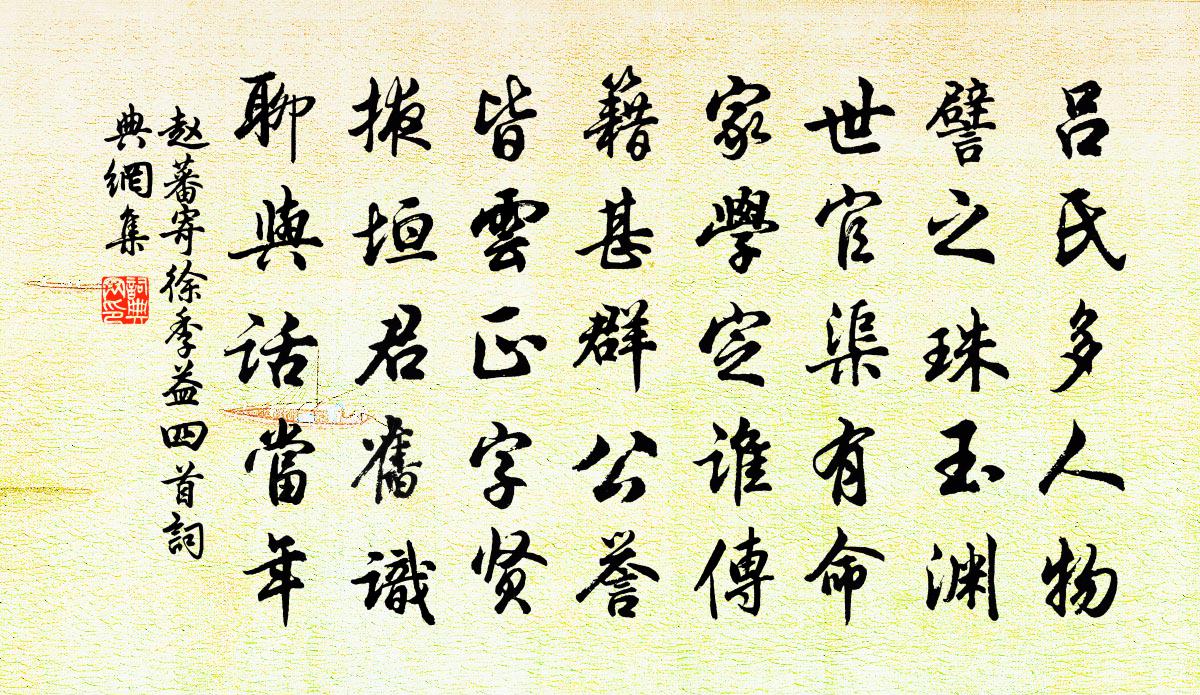 吕氏多人物
譬之珠玉渊
世官渠有命
家學定谁傳
籍甚群公誉
皆雲正字贤
掖垣君舊識
聊與话當年
赵蕃寄徐季益四首詞
典網集
詞典